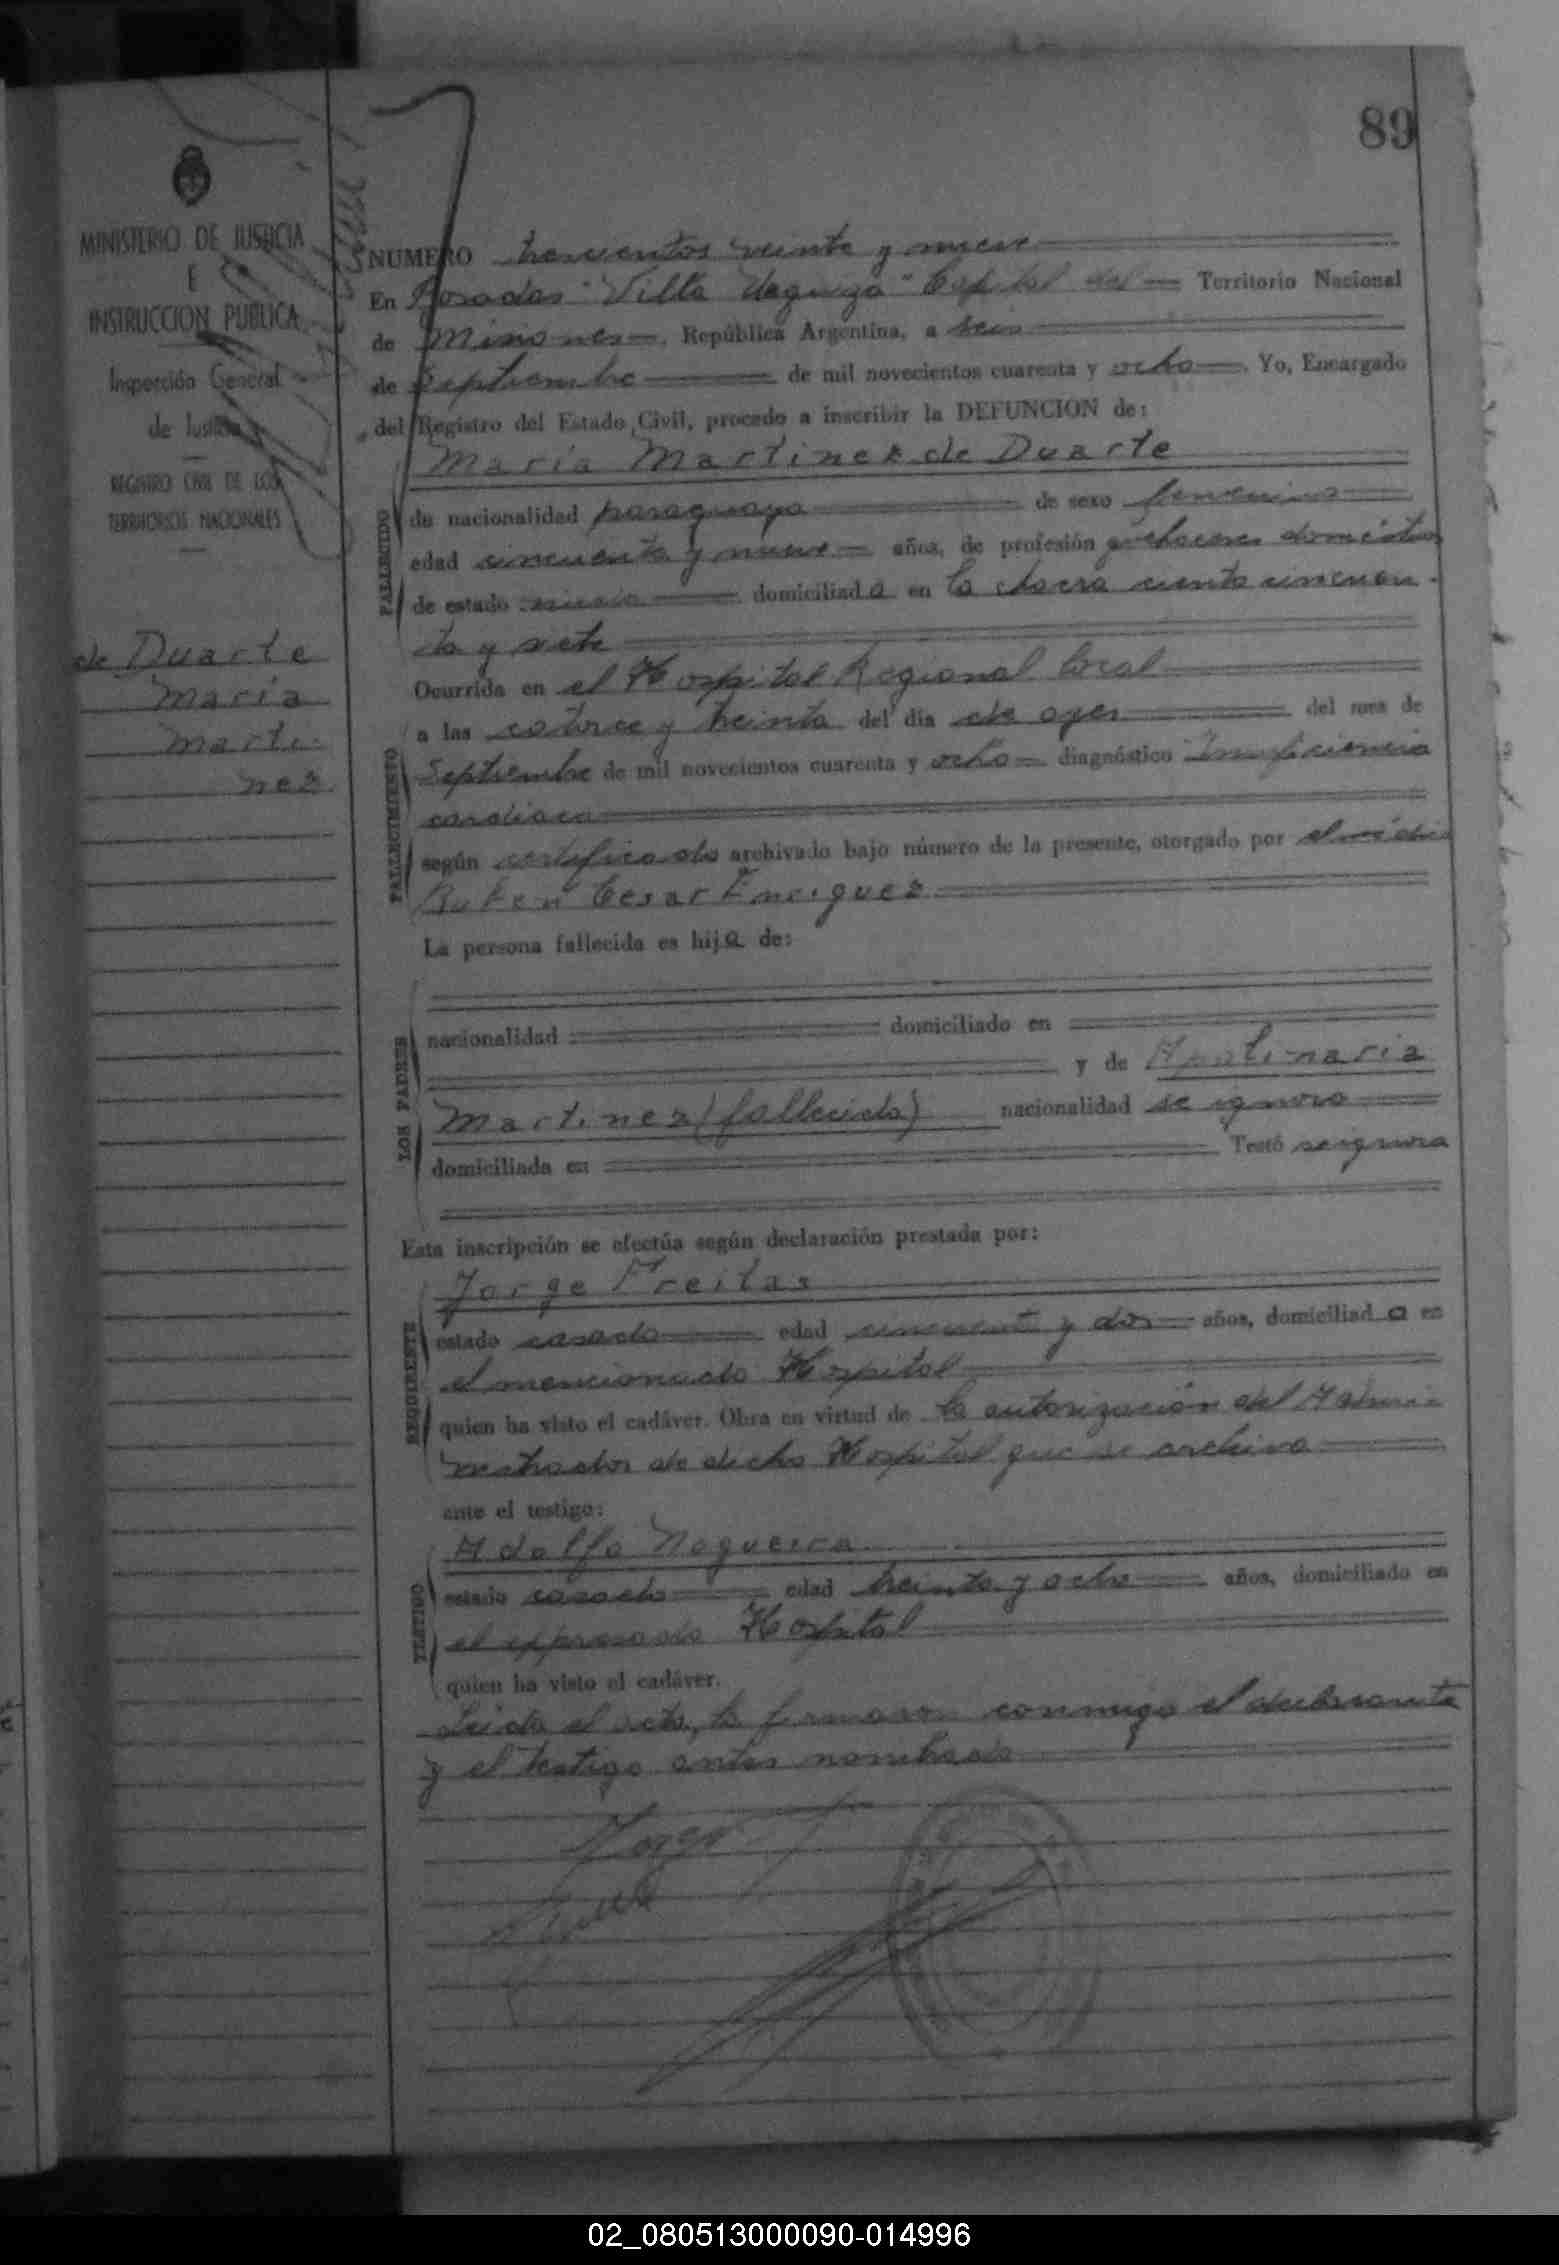 89
MINISTERIO DE JUSTICIA
E
INSTRUCCION PUBLICA
Inspección General
de Justicia
REGISTRO CIVIL DE LOS
TERRITORIOS NACIONALES
de Duarte
Maria
Marti-
nez
NUMERO trescientos veinte y nueve
En Posadas "Villa Urquiza" Capital del Territorio Nacional
de Misiones, República Argentina, a seis
de Septiembre de mil novecientos cuarenta y ocho. Yo, Encargado
del Registro del Estado Civil, procedo a inscribir la DEFUNCION de:
Maria Martinez de Duarte
FALLECIDO
de nacionalidad paraguaya de sexo femenino
edad cincuenta y nueve años, de profesión quehaceres domésticos
de estado domiciliada en la chacra ciento cincuen-
ta y siete
FALLECIMIENTO
Ocurrida en el Hospital Regional local
a las catorce y treinta del día de ayer del mes de
Septiembre de mil novecientos cuarenta y ocho diagnóstico Insuficiencia
cardiaca
según certificado archivado bajo número de la presente, otorgado por el médico
Ruben Cesar Enriguez
La persona fallecida es hija de:
LOS PADRES
nacionalidad domiciliado en
y de Apolinaria
Martinez (fallecida) nacionalidad se ignora
domiciliada en Testó se ignora
Esta inscripción se efectúa según declaración prestada por:
REQUIRENTE
Jorge Freitas
estado casado edad cincuenta y dos años, domiciliado en
el mencionado Hospital
quien ha visto el cadáver. Obra en virtud de la autorización del Admi-
nistrador de dicho Hospital que se archiva
ante el testigo:
TESTIGO
Adolfo Nogueira
estado casado edad treinta y ocho años, domiciliado en
el expresado Hospital
quien ha visto el cadáver.
Leida el acta, la firmaron conmigo el declarante
y el testigo antes nombrado
Jorge
02_080513000090-014996